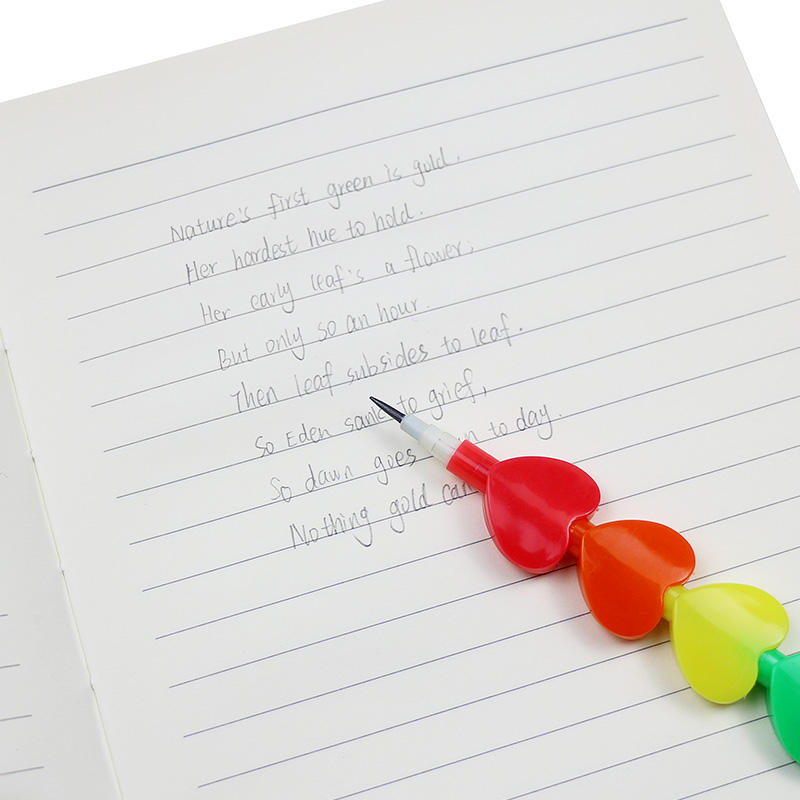 Nature's first green is gold.
Her hardest hue to hold.
Her early leaf's a flower;
But only so an hour.
Then leaf subsides to leaf.
So Eden sank to grief,
So dawn goes to day.
Nothing gold can